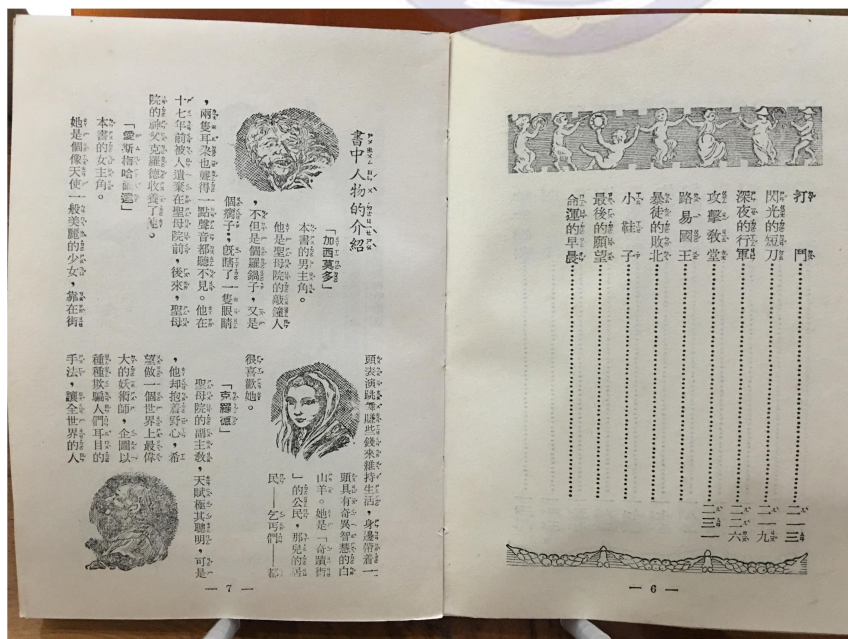 打鬥………………二一三
閃光的短刀………………二一九
深夜的行軍………………二二六
攻擊教堂………………二三一
路易國王………………
暴徒的敗北………………
小鞋子………………
最後的願望………………
命運的早晨………………
— 6 —
書中人物的介紹
「加西莫多」
本書的男主角。
他是聖母院的敲鐘人
，不但是個羅鍋子，又是
個瘸子…，既瞎了一隻眼睛
，兩隻耳朶也聾得一點聲音都聽不見。他在
十七年前被人遺棄在聖母院前，後來，聖母
院的神父克羅德收養了他。
「愛斯梅哈爾達」
本書的女主角。
她是個像天使一般美麗的少女，靠在街
頭表演跳舞賺些錢來維持生活，身邊帶着一
頭具有奇異智慧的白
山羊。她是「奇蹟街
」的公民，那兒的居
民——乞丐們——都
很喜歡她。
「克羅德」
聖母院的副主教，天賦極其聰明，可是
，他却抱着野心，希
望做一個世界上最偉
大的妖術師，企圖以
種種欺騙人們耳目的
手法，讓全世界的人
— 7 —